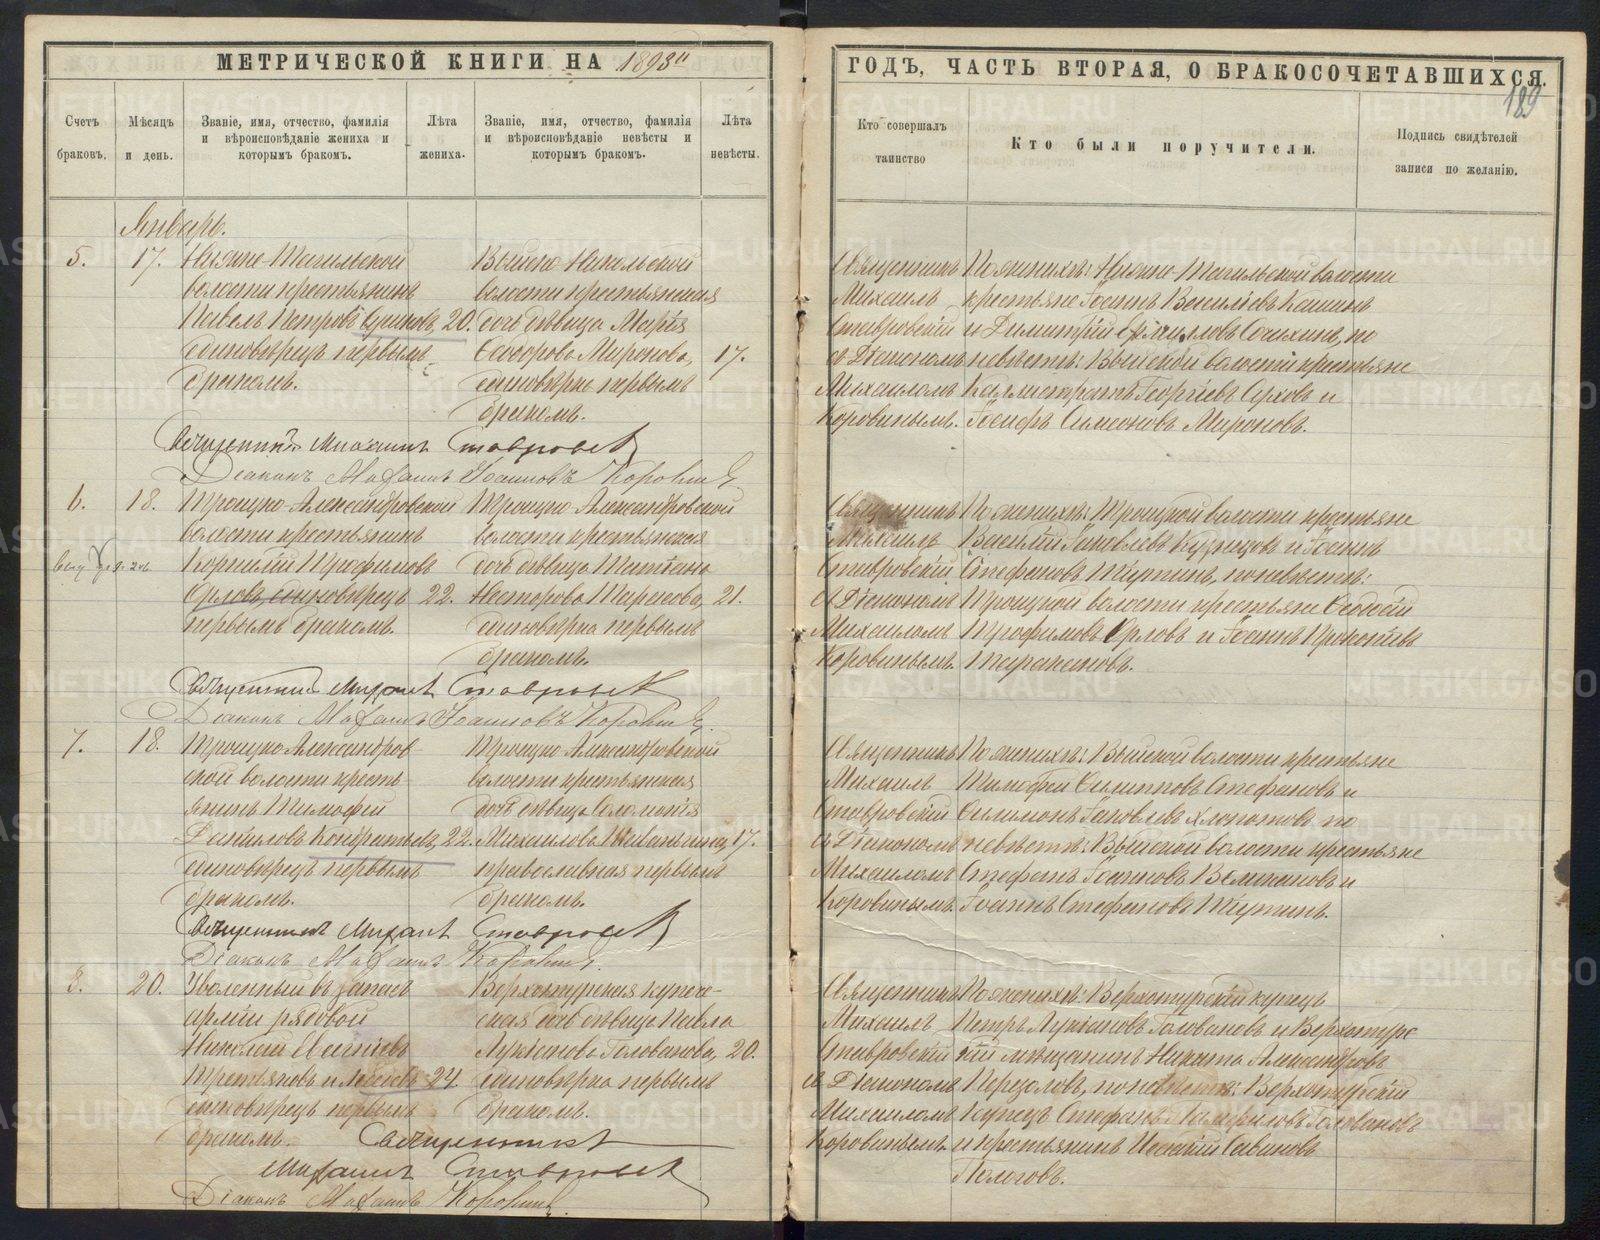 МЕТРИЧЕСКОЙ КНИГИ НА 1893й
ГОДЪ, ЧАСТЬ ВТОРАЯ, О БРАКОСОЧЕТАВШИХСЯ.
189
Счетъ браковъ.
Мѣсяцъ и день.
Званіе, имя, отчество, фамилія
и вѣроисповѣданіе жениха и
которымъ бракомъ.
Лѣта жениха.
Званіе, имя, отчество, фамилія
и вѣроисповѣданіе невѣсты и
которымъ бракомъ.
Лѣта невѣсты.
Кто совершалъ таинство
Кто были поручители.
Подпись свидѣтелей
записи по желанію.
Январь.
5.
17.
Нижне-Тагильской
волости крестьянинъ
Павелъ Петровъ 20.
единовѣрецъ первымъ
бракомъ.
Выйско-Никольской
волости крестьянская
дочь дѣвица Марія
Ѳеодорова Миронова, 17.
единовѣрка первымъ
бракомъ.
Священникъ
Михаилъ
Ставровскій
съ Діакономъ
Михаиломъ
Коровинымъ.
По женихѣ: Нижне-Тагильской волости
крестьяне Іоаннъ Васильевъ
и Димитрій по
невѣстѣ: Выйской волости крестьяне
Каллистратъ Георгіевъ и
Іосифъ Симеоновъ Мироновъ.
Священникъ Михаилъ Ставровскій
Діаконъ Михаилъ Іоанновъ Коровинъ
6.
18.
Троицко-Александровской
волости крестьянинъ
Корнилій Трофимовъ
Орловъ, единовѣрецъ 22.
первымъ бракомъ.
Троицко-Александровской
волости крестьянская
дочь дѣвица Татіана
Несторова Тараканова, 21.
единовѣрка первымъ
бракомъ.
Священникъ
Михаилъ
Ставровскій
съ Діакономъ
Михаиломъ
Коровинымъ.
По женихѣ: Троицкой волости крестьяне
Василій Іаковлевъ Кузнецовъ и Іоаннъ
Стефановъ по невѣстѣ:
Троицкой волости крестьяне
Трофимовъ Орловъ и Іоаннъ Прокопьевъ
Таракановъ.
Священникъ Михаилъ Ставровскій
Діаконъ Михаилъ Іоанновъ Коровинъ
7.
18.
Троицко-Александров-
ской волости кресть-
янинъ Тимофей
Даниловъ Кондратьевъ, 22.
единовѣрецъ первымъ
бракомъ.
Троицко-Александровской
волости крестьянская
дочь дѣвица Соломонія
Михаилова 17.
православная первымъ
бракомъ.
Священникъ
Михаилъ
Ставровскій
съ Діакономъ
Михаиломъ
Коровинымъ.
По женихѣ: Выйской волости крестьяне
Тимофей Филипповъ Стефановъ и
Симеонъ Іаковлевъ Хлопотовъ по
невѣстѣ: Выйской волости крестьяне
Стефанъ Іоанновъ Великановъ и
Іоаннъ Стефановъ
Священникъ Михаилъ Ставровскій
Діаконъ Михаилъ Коровинъ.
8.
20.
Уволенный въ запасъ
арміи рядовой
Николай Евгеніевъ
Третьяковъ 24.
единовѣрецъ первымъ
бракомъ.
Верхотурская купече-
ская дочь дѣвица Павла
Лукіанова Голованова, 20.
единовѣрка первымъ
бракомъ.
Священникъ
Михаилъ
Ставровскій
съ Діакономъ
Михаиломъ
Коровинымъ.
По женихѣ: Верхотурскій купецъ
Петръ Лукіановъ Головановъ и Верхотурс
кій мѣщанинъ Никита Александровъ
по невѣстѣ: Верхотурскій
купецъ Стефанъ Головановъ
и крестьянинъ Савиновъ
Пологовъ.
Священникъ
Михаилъ Ставровскій
Діаконъ Михаилъ Коровинъ.
METRIKI.GASO-URAL.RU